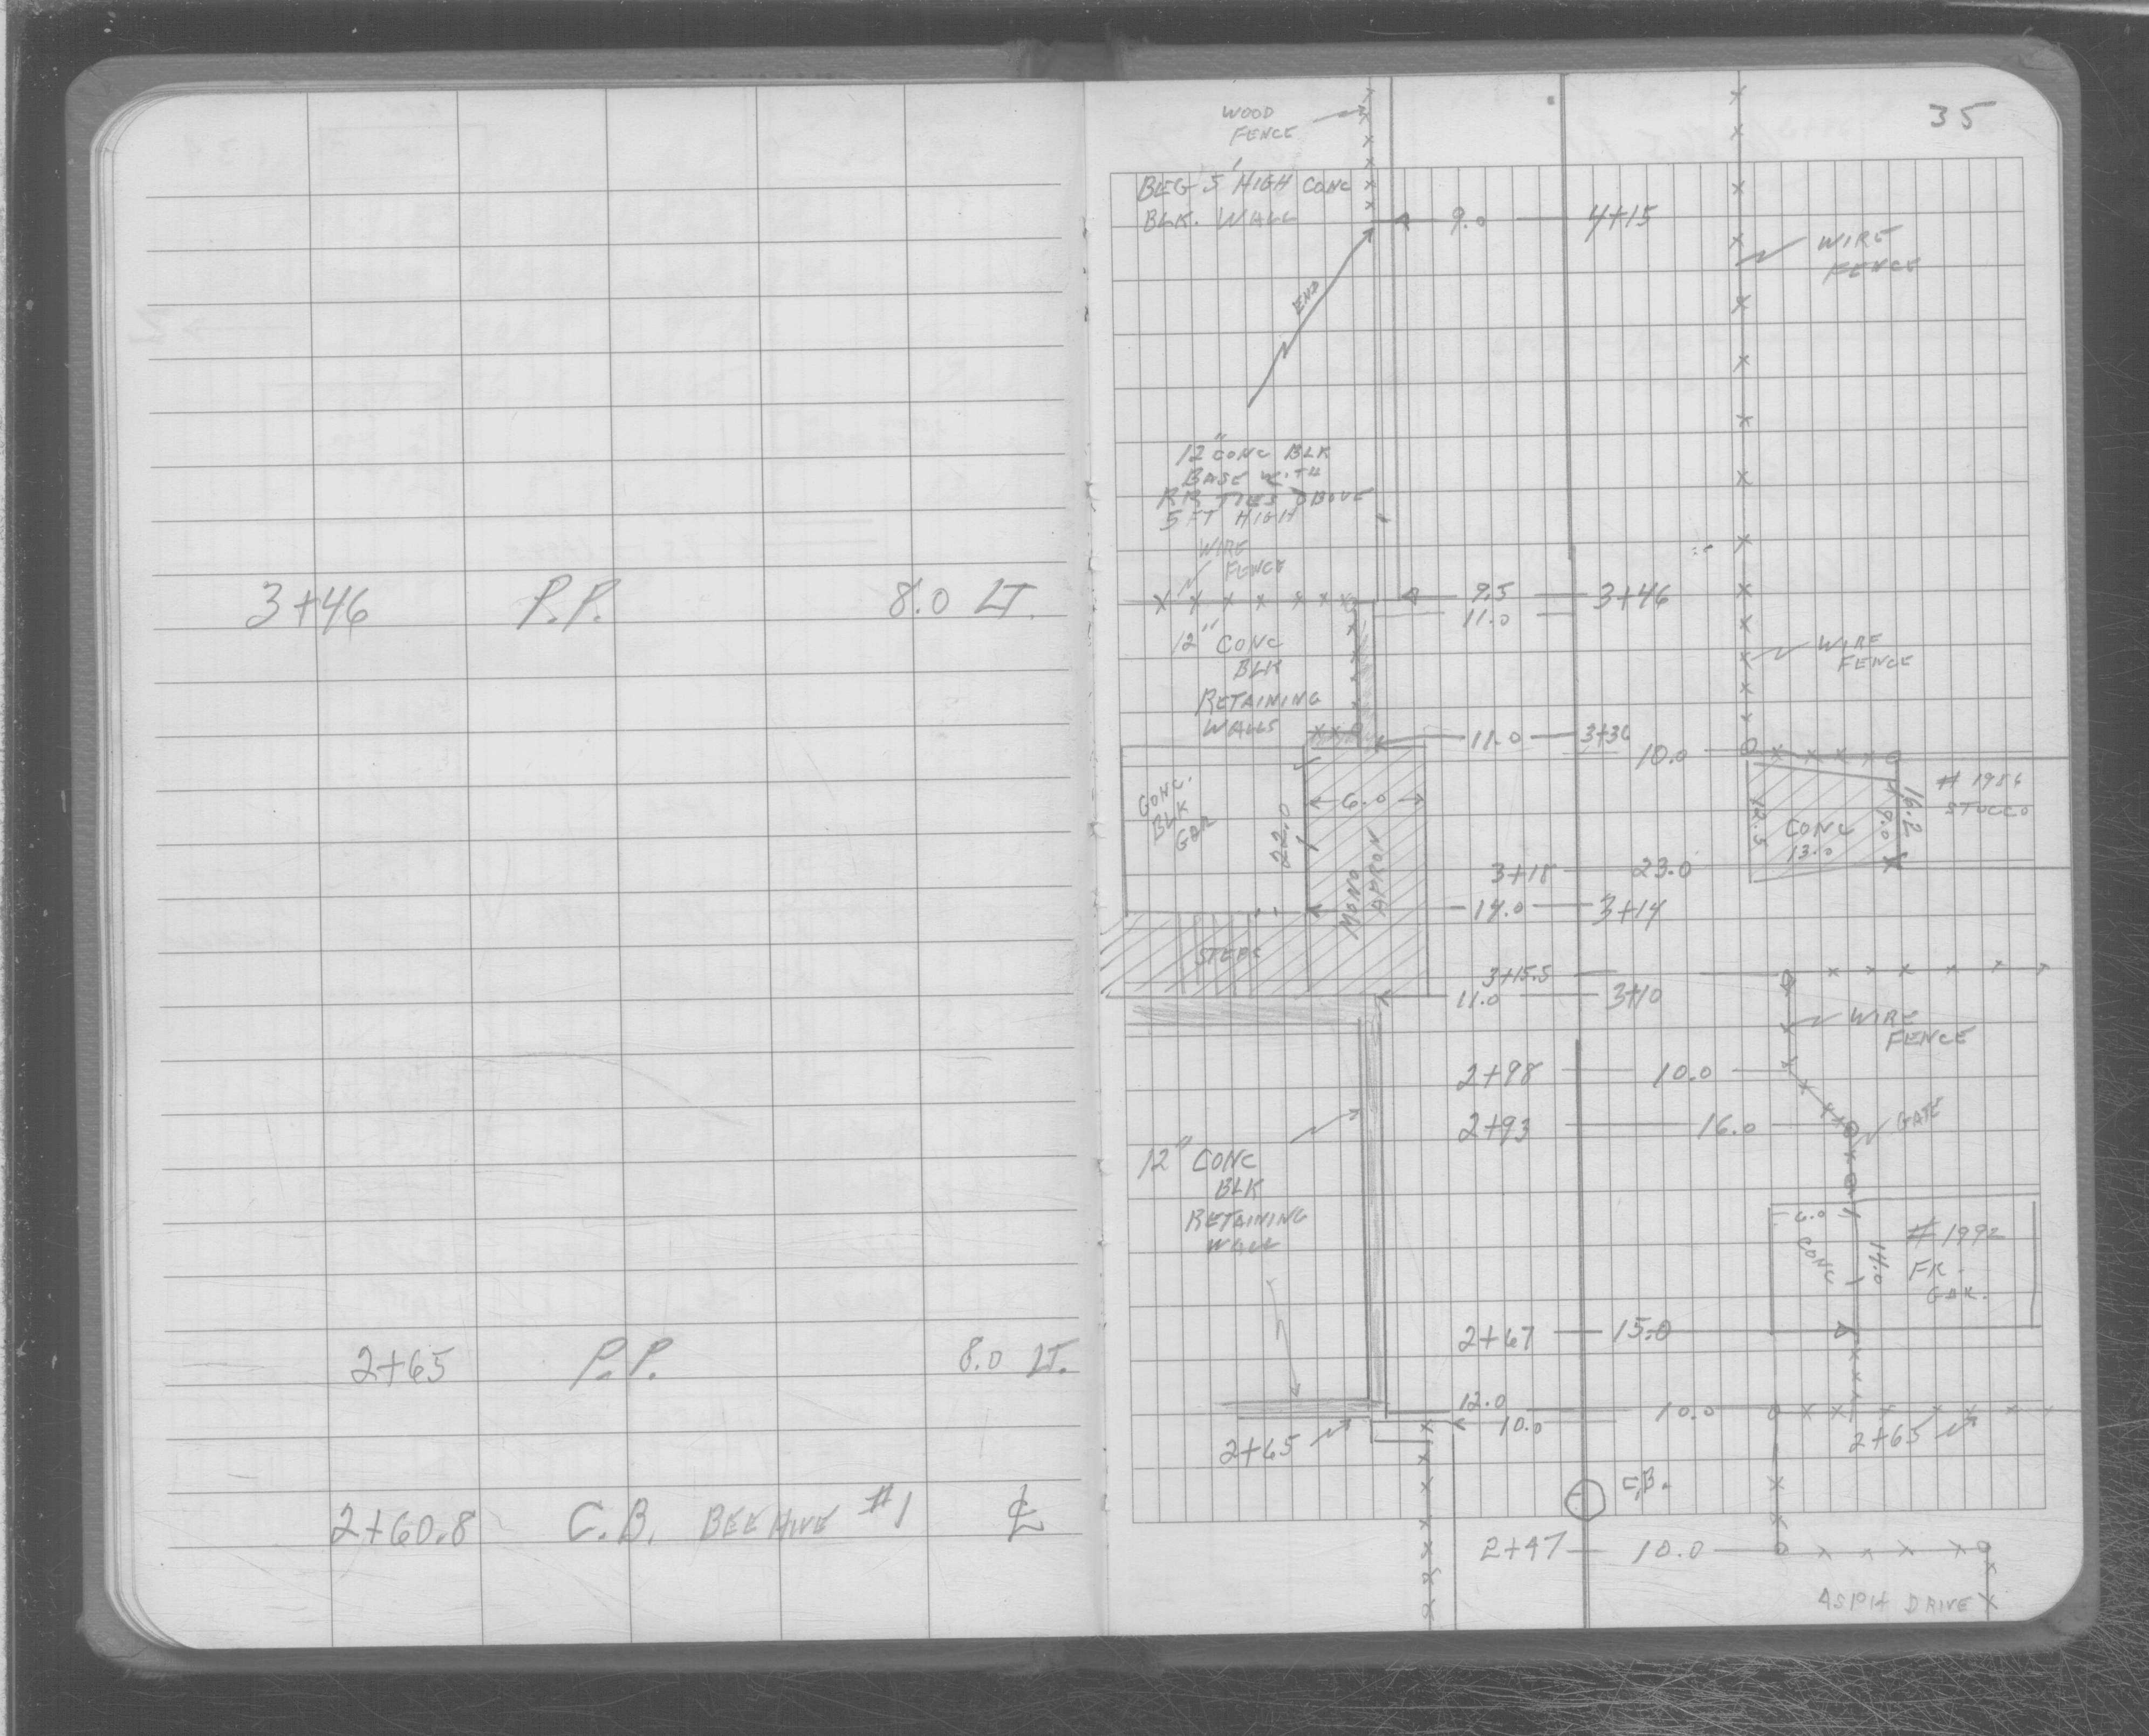 3+46 P.P. 8.0 LT.
2+65 P.P. 8.0 LT.
2+60.8 C.B. BEEHIVE #1 ℄
35
WOOD
FENCE
BEG 5' HIGH CONC
BLK. WALL
9.0 4+15
WIRE
FENCE
END
12" CONC BLK
BASE WITH
RR TIES ABOVE
5 FT HIGH
WIRE
FENCE
9.5 3+46
11.0
12" CONC
BLK
RETAINING
WALLS
WIRE
FENCE
11.0 3+36
10.0
CONC.
BLK
GAR
22.0
6.0
MONO
APRON
12.5
CONC
13.0
9.0
16.2
# 1986
STUCCO
3+18 23.0
14.0 3+14
STEPS
3+15.5
11.0 3+10
WIRE
FENCE
2+98 10.0
2+93 16.0
GATE
12" CONC
BLK
RETAINING
WALL
6.0
CONC
14.0
# 1992
FR.
GAR.
2+67 15.0
12.0
10.0 10.0
2+65
2+65
C.B.
2+47 10.0
ASPH DRIVE